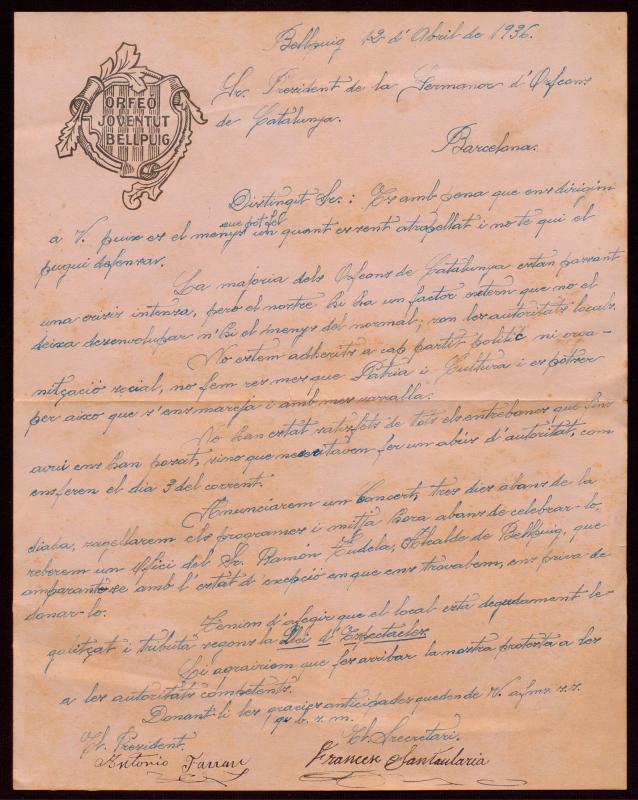 Bellpuig 12 d'Abril de 1936.
ORFEÓ
JOVENTUT
BELLPUIG
Sr. President de la Germanor d'Orfeons
de Catalunya.
Barcelona.
Distingit Sr.: Es amb pena que ens dirigim
que pot fer
a V. puix es el menys un quant es sent atropellat i no te qui el
pugui defensar.
La majoria dels Orfeons de Catalunya estan passant
una crisis intensa, pero el nostre hi ha un factor extern que no el
deixa desenvolupar n'hi el menys del normal; son les autoritats locals.
No estem adherits a cap partit polític ni orga-
nitçació social, no fem res mes que Patria i Cultura i es potser
per aixo que s'ens mareja i amb mes sarralla.
No han estat satisfets de tots els entrebancs que fins
avui ens han posat, sino que necesitavem fer un abús d'autoritat, com
ens feren el dia 3 del corrent.
Anunciarem un Concert, tres dies abans de la
diada, sagellarem els programes i mitja hora abans de celebrar-lo,
reberem un Ofici del Sr. Ramón Tudela, Alcalde de Bellpuig, que
amparantse amb l'estat d'exepció en que ens trovabem, ens priva de
donar-lo.
Tenim d'afegir que el local està degudament le-
galitçat i tributa segons la Llei d'Espectacles.
Li agrairiem que fes arribar la nostra protesta a les
a les autoritats competents.
Donant-li les gracies anticipades queden de V. afms. s.s.
q. b. s. m.
El President.
El Secretari.
Antonio Farran
Francesc Santaularia